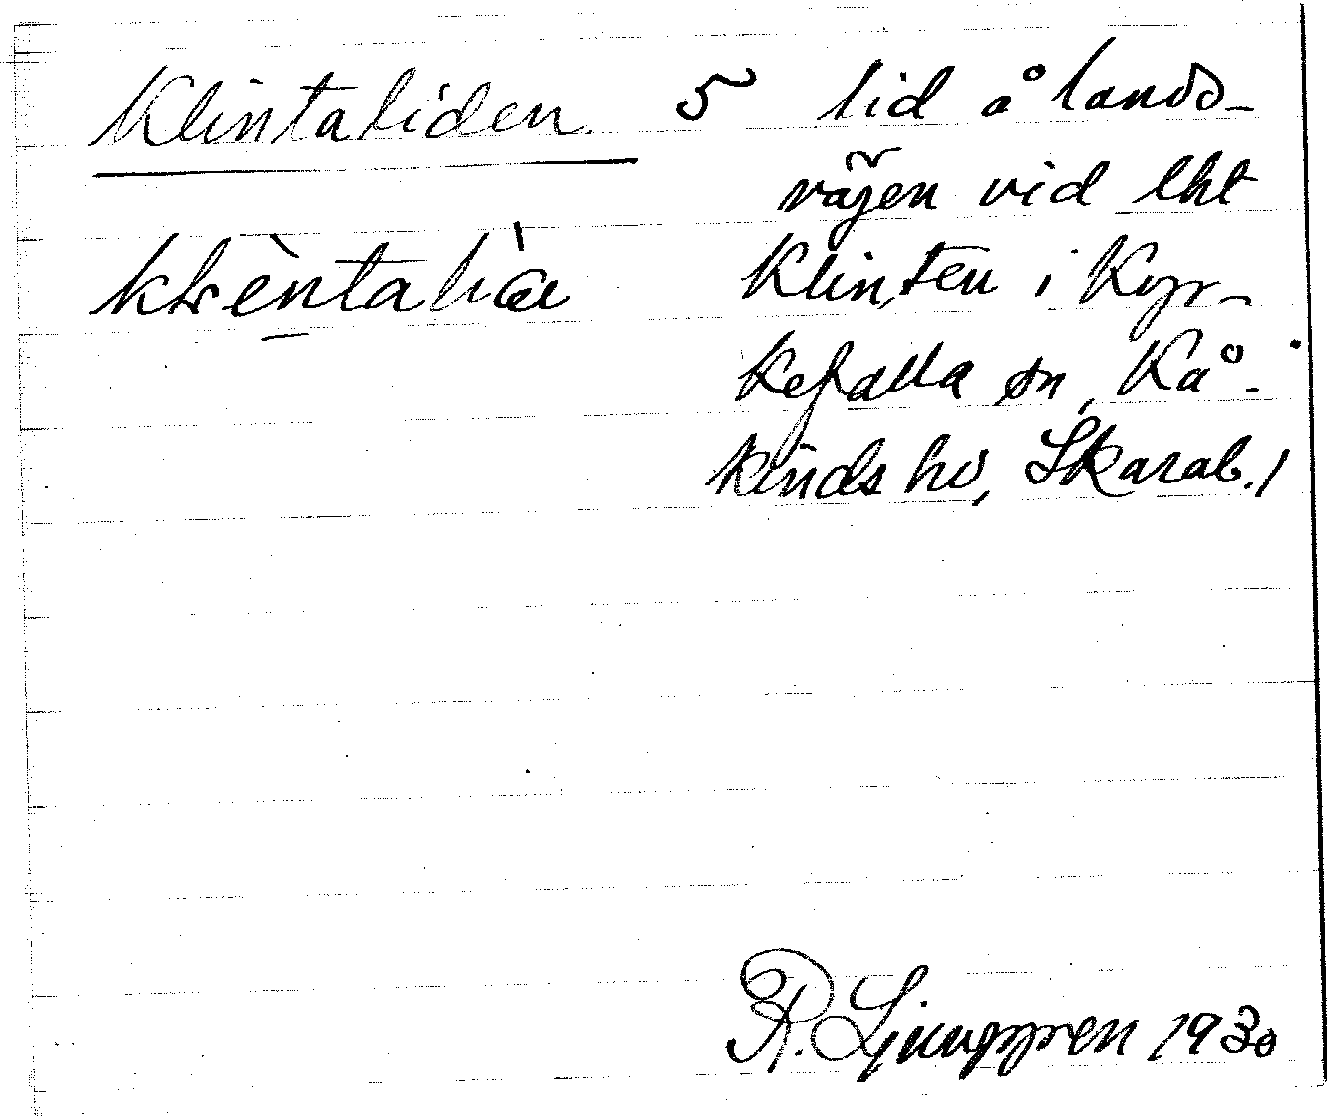 Klintaliden 5 lid å lands-
vägen vid lht
Klinten i Kyr-
kefalla sn, Kå-
kinds hd, Skarab. l
R. Ljunggren 1930